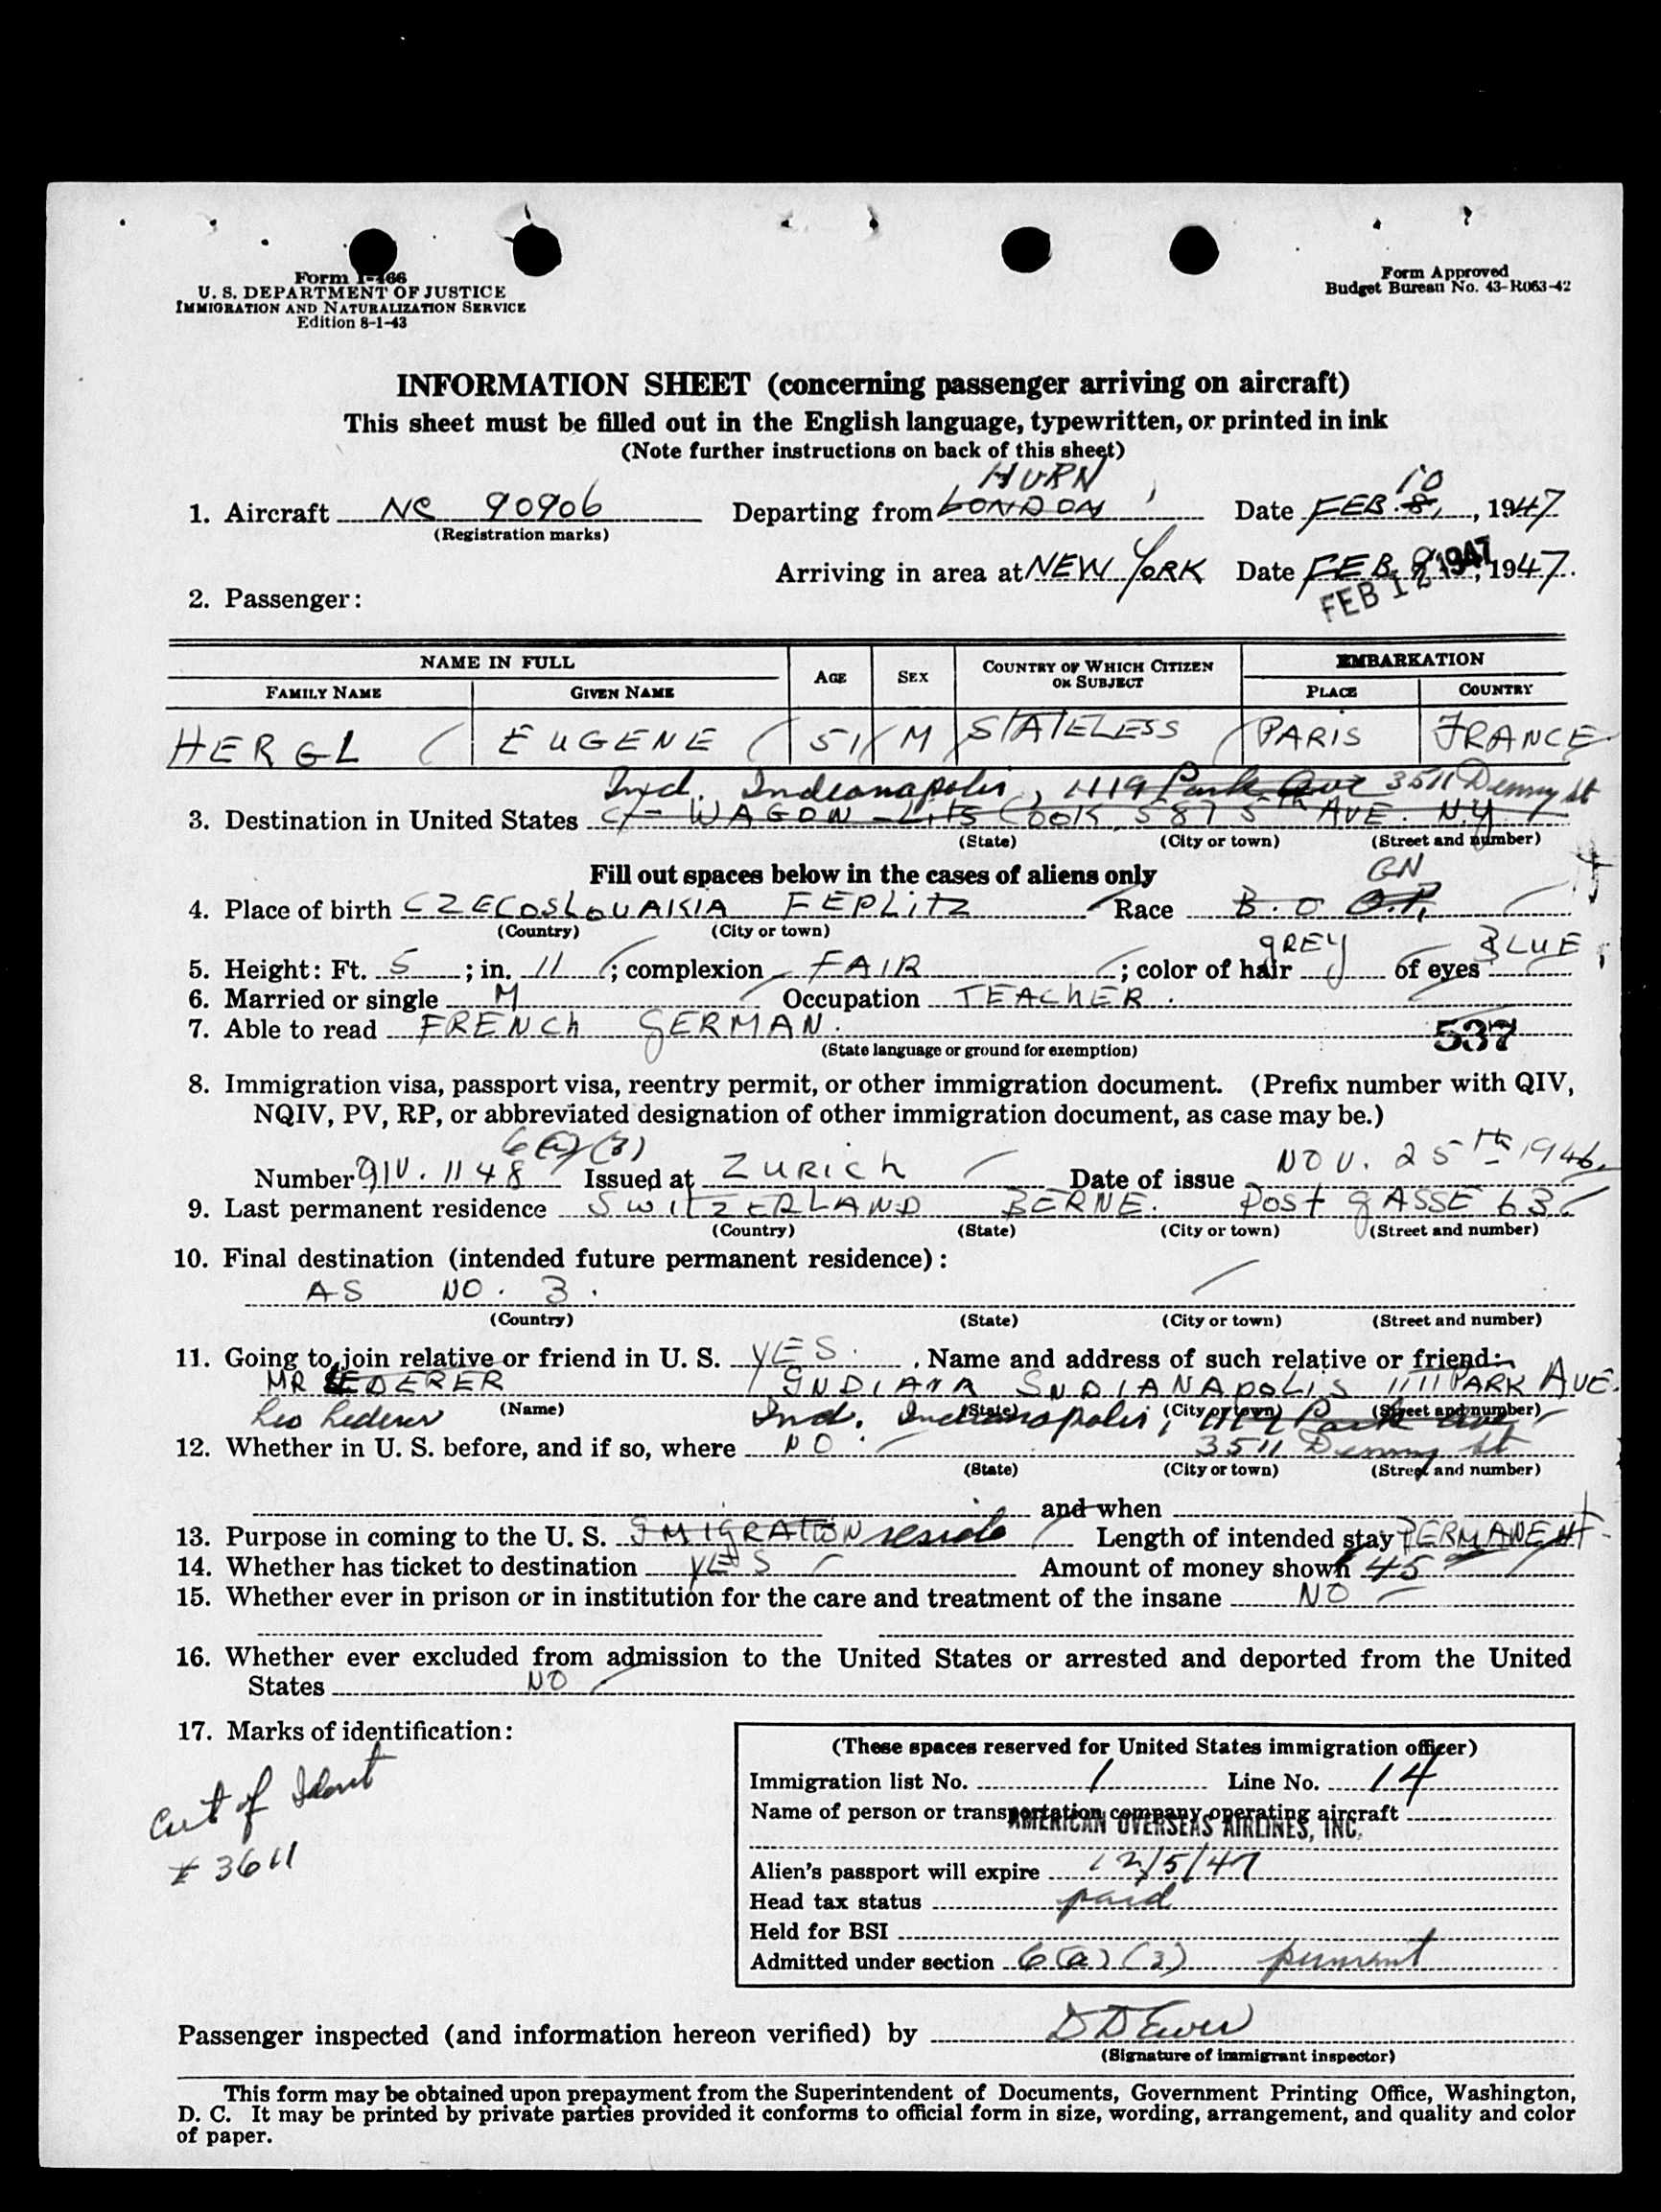 Form I-466
U. S. DEPARTMENT OF JUSTICE
IMMIGRATION AND NATURALIZATION SERVICE
Edition 8-1-43
Form Approved
Budget Bureau No. 43-R063-42
INFORMATION SHEET (concerning passenger arriving on aircraft)
This sheet must be filled out in the English language, typewritten, or printed in ink
(Note further instructions on back of this sheet)
HURN 10
1. Aircraft NC 90906 Departing from LONDON Date FEB. 8, 1947
(Registration marks)
Arriving in area at NEW YORK Date FEB. 9, 1947.
FEB 12 1947
2. Passenger:
NAME IN FULL AGE SEX COUNTRY OF WHICH CITIZEN OR SUBJECT EMBARKATION
FAMILY NAME GIVEN NAME PLACE COUNTRY
HERGL EUGENE 51 M STATELESS PARIS FRANCE
Ind. Indianapolis, 1119 Park Ave 3511 Denny St
3. Destination in United States c/- WAGON-LITS COOK 587 5th AVE. N.Y.
(State) (City or town) (Street and number)
Fill out spaces below in the cases of aliens only
GN
4. Place of birth CZECOSLOUAKIA FEPLITZ Race B.O
(Country) (City or town)
5. Height: Ft. 5; in. 11; complexion FAIR; color of hair GREY of eyes BLUE
6. Married or single M Occupation TEACHER.
7. Able to read FRENCH GERMAN.
(State language or ground for exemption)
537
8. Immigration visa, passport visa, reentry permit, or other immigration document. (Prefix number with QIV,
NQIV, PV, RP, or abbreviated designation of other immigration document, as case may be.)
6(a)(3)
Number QIV. 1148 Issued at ZURICH Date of issue NOV. 25th 1946.
9. Last permanent residence SWITZERLAND BERNE. POSTGASSE 63
(Country) (State) (City or town) (Street and number)
10. Final destination (intended future permanent residence):
AS NO. 3.
(Country) (State) (City or town) (Street and number)
11. Going to join relative or friend in U. S. YES. . Name and address of such relative or friend:
MR LEDERER INDIANA INDIANAPOLIS 1111 PARK AVE.
(Name) (State) (City or town) (Street and number)
Leo Lederer Ind. Indianapolis, 1119 Park Ave
12. Whether in U. S. before, and if so, where NO. 3511 Denny St
(State) (City or town) (Street and number)
and when
13. Purpose in coming to the U. S. IMIGRATION reside Length of intended stay PERMANENT.
14. Whether has ticket to destination YES Amount of money shown 45
15. Whether ever in prison or in institution for the care and treatment of the insane NO
16. Whether ever excluded from admission to the United States or arrested and deported from the United
States NO
17. Marks of identification:
Cert of Ident
# 3611
(These spaces reserved for United States immigration officer)
Immigration list No. 1 Line No. 14
Name of person or transportation company operating aircraft
AMERICAN OVERSEAS AIRLINES, INC.
Alien's passport will expire 12/5/47
Head tax status paid
Held for BSI
Admitted under section 6(a)(3)
Passenger inspected (and information hereon verified) by
(Signature of immigrant inspector)
This form may be obtained upon prepayment from the Superintendent of Documents, Government Printing Office, Washington,
D. C. It may be printed by private parties provided it conforms to official form in size, wording, arrangement, and quality and color
of paper.